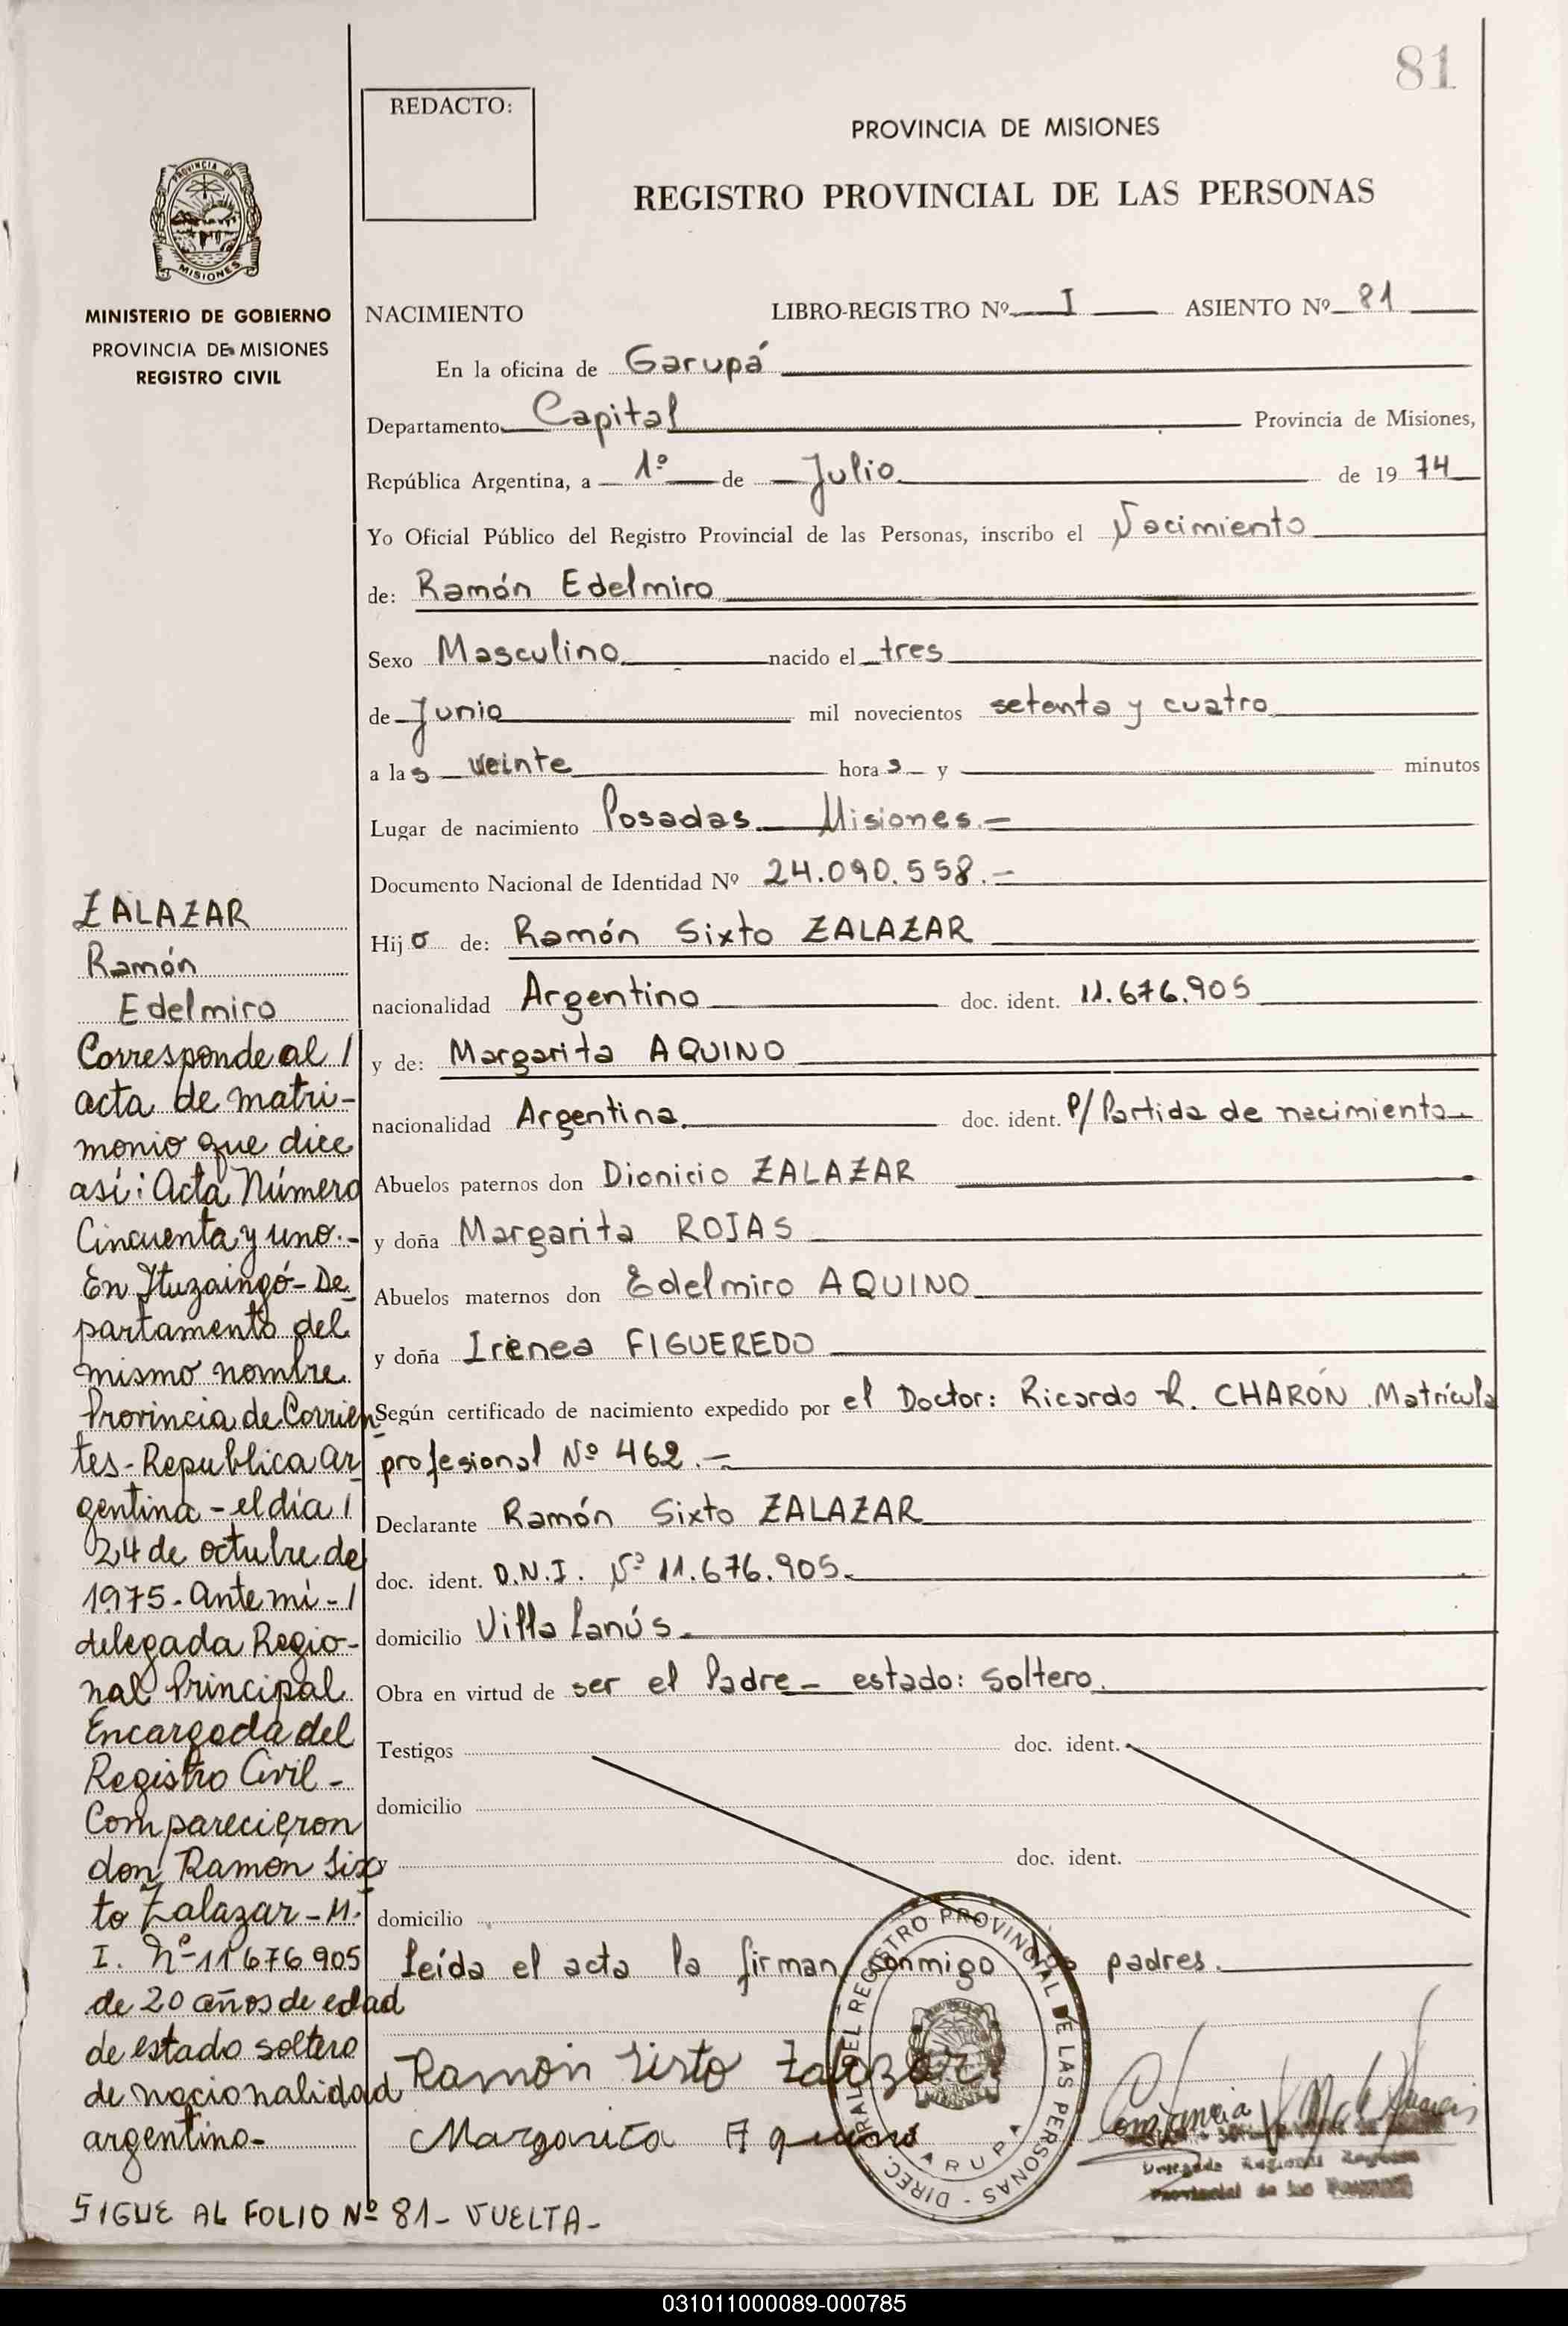 81
REDACTO:
PROVINCIA DE MISIONES
REGISTRO PROVINCIAL DE LAS PERSONAS
PROVINCIA DE
MISIONES
MINISTERIO DE GOBIERNO
PROVINCIA DE MISIONES
REGISTRO CIVIL
NACIMIENTO LIBRO-REGISTRO Nº I ASIENTO Nº 81
En la oficina de Garupá
Departamento Capital Provincia de Misiones,
República Argentina, a 1º de Julio de 19 74
Yo Oficial Público del Registro Provincial de las Personas, inscribo el Nacimiento
de: Ramón Edelmiro
Sexo Masculino nacido el tres
de Junio mil novecientos setenta y cuatro
a las veinte horas y minutos
Lugar de nacimiento Posadas Misiones.-
Documento Nacional de Identidad Nº 24.090.558.-
Hijo de: Ramón Sixto ZALAZAR
nacionalidad Argentino doc. ident. 11.676.905
y de: Margarita AQUINO
nacionalidad Argentina. doc. ident. P/ Partida de nacimiento
Abuelos paternos don Dionicio ZALAZAR
y doña Margarita ROJAS
Abuelos maternos don Edelmiro AQUINO
y doña Irenea FIGUEREDO
Según certificado de nacimiento expedido por el Doctor: Ricardo R. CHARON Matrícula
profesional Nº 462.-
Declarante Ramón Sixto ZALAZAR
doc. ident. D.N.I. Nº 11.676.905.
domicilio Villa Lanús.
Obra en virtud de ser el Padre - estado: soltero.
Testigos doc. ident.
domicilio
doc. ident.
domicilio
Leída el acta la firman conmigo padres.
Ramón Sisto Zalazar
Margarita Aquino
DIREC. RAL DEL REGISTRO PROVINCIAL DE LAS PERSONAS -
ARUPA
Constancia
Delegada Regional
Provincial de las
ZALAZAR
Ramón
Edelmiro
Corresponde al /
acta de matri-
monio que dice
así: Acta Número
Cincuenta y uno.-
En Ituzaingó - De
partamento del
mismo nombre
Provincia de Corrien
tes - Republica Ar
gentina - el día /
24 de octubre de
1975 - Ante mí - /
delegada Regio-
nal Principal
Encargada del
Registro Civil -
Comparecieron
don Ramón Six
to Zalazar - M.
I. Nº 11 676 905
de 20 años de edad
de estado soltero
de nacionalidad
argentino-
SIGUE AL FOLIO Nº 81- VUELTA-
031011000089-000785